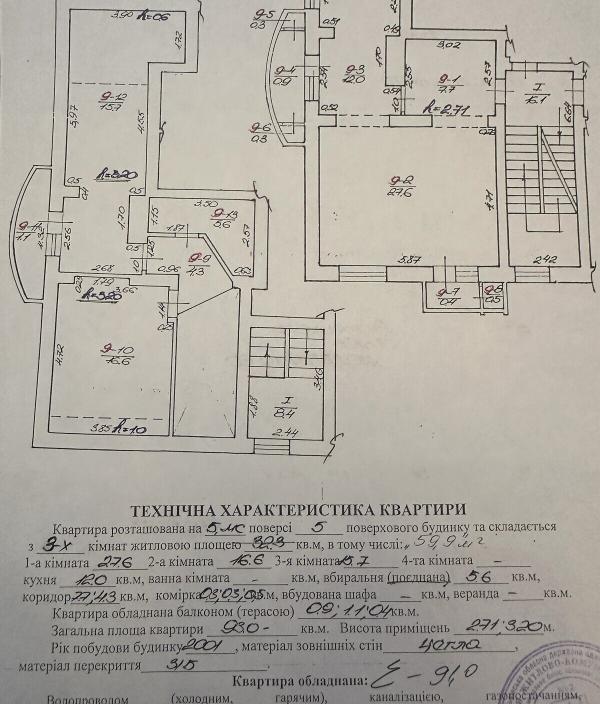 3.90 h=0.6
9-5
0.3
0.51
1.72
3.02
9-12
15.7
9-4
0.9
2.54
9-3
12.0
1.70
2.55
9-1
7.7
2.57
I
16.1
6.64
0.54
1.0
h=2.71
0.52
5.97
4.55
9-6
0.3
h=3.20
0.5
0.5
9-2
27.6
4.71
3.50
1.15
9-13
5.6
1.70
1.87
2.57
9-11
1.1
4.32
2.56
0.5
1.25
1.0
9-9
4.3
0.63
5.87
2.42
2.68
0.96
1.79
3.66
h=3.20
9-7
0.4
9-8
0.5
1.14
9-10
16.6
4.72
3.46
I
8.4
1.88
2.44
3.85 h=1.0
ТЕХНІЧНА ХАРАКТЕРИСТИКА КВАРТИРИ
Квартира розташована на 5,мс поверсі 5 поверхового будинку та складається
з 3-х кімнат житловою площею кв.м, в тому числі: 59,9 м²
1-а кімната 27.6 2-а кімната 16.6 3-я кімната 15.7 4-та кімната -
кухня 12.0 кв.м, ванна кімната - кв.м, вбиральня (поєднана) 5.6 кв.м,
коридор 7.7; 4.3 кв.м, комірка 0.3; 0.3; 0.5 м, вбудована шафа - кв.м, веранда - кв.м.
Квартира обладнана балконом (терасою) 0.9; 1.1; 0.4 кв.м.
Загальна площа квартири 93.0- кв.м. Висота приміщень 2.71; 3.20 м.
Рік побудови будинку 2001, матеріал зовнішніх стін цегла,
матеріал перекриття з/б.
Квартира обладнана: Σ - 91,0
Водопроводом (холодним, гарячим), каналізацією, газопостачанням,